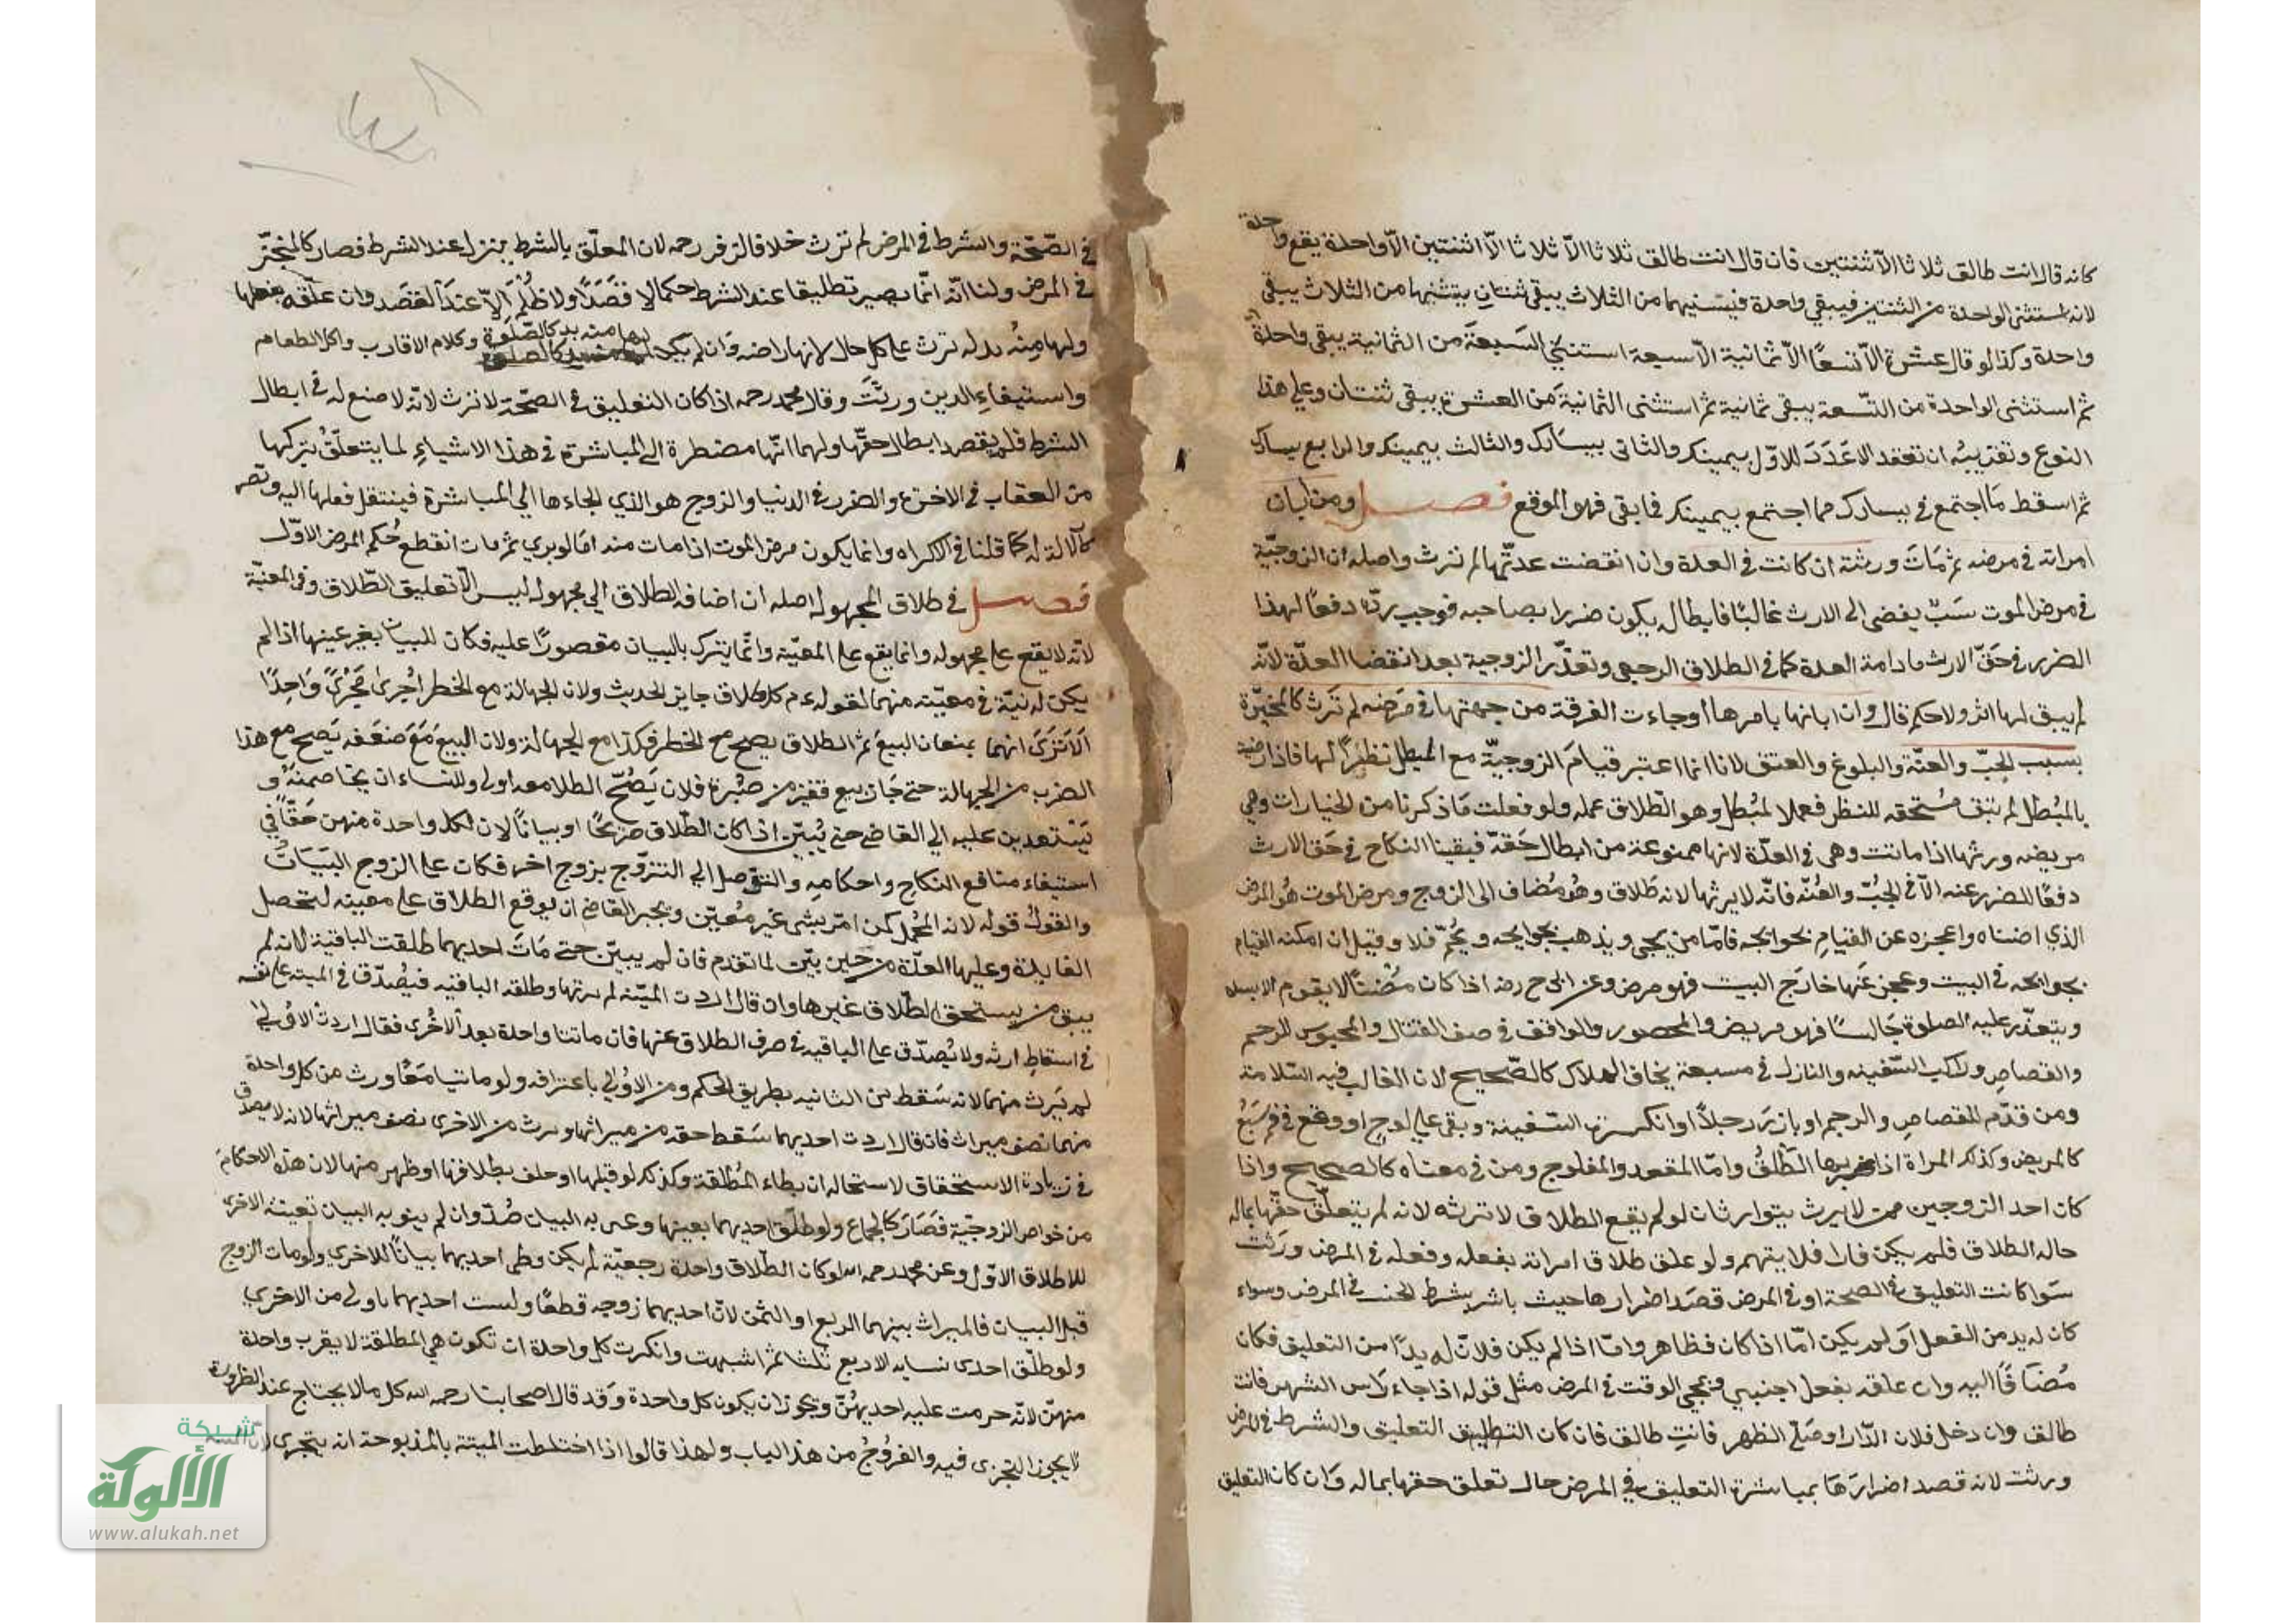 كانه قال انت طالق ثلاثا الا ثنتين فان قال انت طالق ثلاثا الا ثلاثا الا اثنتين الا واحدة يقع واحدة
لانه استثنى الواحدة من الثنتين فيبقي واحدة فيستثنيهما من الثلاث يبقى ثنتان يستثنيها من الثلاث يبقى
واحدة وكذا لو قال عشرة الا تسعا الا ثمانية الا سبعة استثنى السبعة من الثمانية يبقى واحدة
ثم استثنى الواحدة من التسعة يبقى ثمانية ثم استثنى الثمانية من العشرة يبقى ثنتان وعلى هذا
النوع وتقريبه ان تعقد الاعدد للاول بيمينك والثاني بيسارك والثالث بيمينك والرابع بيسارك
ثم اسقط ما اجتمع في يسارك مما اجتمع بيمينك فما بقى فهو الموقع فصل ومن ابان
امراته في مرضه ثم مات ورثته ان كانت في العدة وان انقضت عدتها لم ترث واصله ان الزوجية
في مرض الموت سبب يفضى الى الارث غالبا فابطاله يكون ضررا بصاحبه فوجب رده دفعا لهذا
الضرر في حق الارث ما دامة العدة كما في الطلاق الرجعي وتعذر الزوجية بعد انقضا العدة لانه
لم يبق لها اثر ولا حكم قال وان ابانها بامرها او جاءت الفرقة من جهتها في مرضه لم ترث كالمخيرة
بسبب الجب والعنة والبلوغ والعتق لانا انما اعتبر قيام الزوجية مع المبطل نظرا لها فاذا رضيت
بالمبطل لم تبق مستحقه للنظر فعمل المبطل وهو الطلاق عمله ولو فعلت ما ذكرنا من الخيارات وهي
مريضه ورثها اذا ماتت وهى في العدة لانها ممنوعة من ابطال حقه فبقينا النكاح في حق الارث
دفعا للضرر عنه الا في الجب والعنه فانه لا يرثها لانه طلاق وهو مضاف الى الزوج ومرض الموت هو المرض
الذي اضناه واعجزه عن القيام بحوائجه فاما من يجى ويذهب بحوائجه ويحم فلا وقيل ان امكنه القيام
بحوائجه في البيت وعجز عنها خارج البيت فهو مرض وعن ابى ح رضه اذا كان مضنا لا يقوم الا بشدة
ويتعذر عليه الصلوة جالسا فهو مريض والمحصور والواقف في صف القتال والمحبوس للرجم
والقصاص وراكب السفينه والنازل في مسبعة يخاف الهلاك كالصحيح لان الغالب فيه السلامة
ومن قدم للقصاص والرجم او بارز رجلا او انكسرت السفينة وبقى على لوح او وقع في فم سبع
كالمريض وكذلك المراة اذا ضربها الطلق واما المقعد والمفلوج ومن في معناه كالصحيح واذا
كان احد الزوجين ممن لا يرث يتوارثان لو لم يقع الطلاق لا ترثه لانه لم يتعلق حقها بماله
حاله الطلاق فلم يكن فارا فلا يتهم ولو علق طلاق امراته بفعله وفعله في المرض ورثت
سوا كانت التعليق في الصحة او في المرض قصد اضرارها حيث باشر شرط الحنث في المرض وسواء
كان له بد من الفعل او لم يكن اما اذا كان فظاهر واما اذا لم يكن فلان له بدا من التعليق فكان
مضافا اليه وان علقه بفعل اجنبي ومجي الوقت في المرض مثل قوله اذا جاء راس الشهر فانت
طالق وان دخل فلان الدار او صلى الظهر فانت طالق فان كان التطليق التعليق والشرط في المرض
ورثت لانه قصد اضرارها بمباشرة التعليق في المرض حال تعلق حقها بماله وان كان التعليق
في الصحة والشرط في المرض لم ترث خلافا لزفر رحمه لان المعلق بالشرط ينزل عند الشرط فصار كالمنجز
في المرض ولنا انه انما يصير تطليقا عند الشرط حكما لا قصدا ولا ظلم الا عند القصد وان علقه بفعلها
ولها منه بد لم ترث على كل حال لانها راضه وان لم يكن لها منه بد كالصلوة وكلام الاقارب واكل الطعام
واستيفاء الدين ورثت وقال محمد رحمه اذا كان التعليق في الصحة لا ترث لانه لا صنع له في ابطال
الشرط فلم يقصد ابطال حقها ولهما انها مضطرة الى المباشرة في هذا الاشياء لما يتعلق بتركها
من العقاب في الاخرة والضرر في الدنيا والزوج هو الذي الجاءها الى المباشرة فينتقل فعلها اليه وتصير
كالآلة له كما قلنا في الاكراه وانما يكون مرض الموت اذا مات منه اما لو بري ثم مات انقطع حكم المرض الاول
فصل في طلاق المجهوله اصله ان اضافه الطلاق الي مجهوله ليس الا تعليق الطلاق وفي المعنية
لانه لا يقع على مجهوله وانما يقع على المعينه وانما يترك بالبيان مقصورا عليه فكان للبيان بغير عينها اذا لم
يكن له نية في معينه منهما لقوله ءم كل طلاق جايز الحديث ولان الجهالة مع الخطر اجرى مجرى واحدا
الا ترى انهما يمنعان البيع ثم الطلاق يصح مع الخطر فكذا مع الجهالة ولان البيع مع ضعفه يصح مع هذا
الضرب من الجهالة حتى جاز بيع قفيز من صبرة فلان يصح الطلاق معه اولى وللنساء ان يخاصمنه و
يستعدين عليه الي القاضي حتى يبين اذا كان الطلاق صريحا او بيانا لان لكل واحدة منهن حقا في
استيفاء منافع النكاح واحكامه والتوصل الي التزوج بزوج اخر فكان على الزوج البيان
والقول قوله لانه المجمل كمن اقر بشى غير معين ويجبر القاضي ان يوقع الطلاق على معينه لتحصل
الفايدة وعليها العدة من حين بين لما تقدم فان لم يبين حتى مات احديهما طلقت الباقية لانه لم
يبق من يستحق الطلاق غيرها وان قال اردت الميته لم يرثها وطلقه الباقيه فيصدق في الميته على نفسه
في اسقاط ارثه ولا يصدق على الباقيه في صرف الطلاق عنها فان ماتتا واحدة بعد الاخرى فقال اردت الاولى
لم يرث منهما لانه سقط من الثانيه بطريق الحكم ومن الاولى باعترافه ولو ماتتا معا ورث من كل واحدة
منهما نصف ميراث فان قال اردت احديهما سقط حقه من ميراثها ويرث من الاخرى نصف ميراثها لانه لا يصدق
في زيادة الاستحقاق لاستحاله ان يطاء المطلقة وكذلك لو قبلها او حلف بطلاقها او ظهر منها لان هذه الاحكام
من خواص الزوجية فصار كالجماع ولو طلق احديهما بعينها وعنى به البيان صدق وان لم ينو به البيان تعينت الاخرى
للطلاق الاول وعن محمد رحمه الله لو كان الطلاق واحدة رجعية لم يكن وطى احديهما بيانا للاخري ولو مات الزوج
قبل البيان فالميراث بينهما الربع او الثمن لان احديهما زوجه قطعا وليست احديهما باولى من الاخري
ولو طلق احدى نسايه الاربع ثلثا ثم اشتبهت وانكرت كل واحدة ان تكون هي المطلقة لا يقرب واحدة
منهن لانه حرمت عليه احديهن ويجوز ان يكون كل واحدة وقد قال اصحابنا رحمه الله كل ما لا يحتاج عند الضرورة
لا يجوز التحرى فيه والفروج من هذ الباب ولهذا قالوا اذا اختلطت الميتة بالمذبوحة انه يتحرى لان
شبكة
الألوكة
www.alukah.net